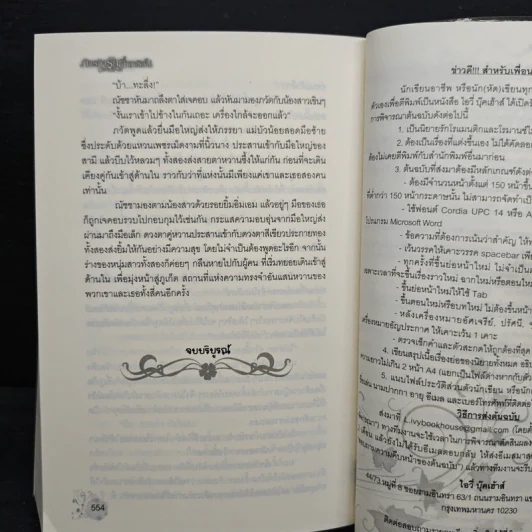 "บ้า...ทะลึ่ง!"
ณัชชาหันมาถลึงตาใส่เจคอบ แล้วหันมามองภาวัตกับน้องสาวเขินๆ
"งั้นเราเข้าไปข้างในกันเถอะ เครื่องใกล้จะออกแล้ว"
ภาวัตพูดแล้วยื่นมือใหญ่ส่งให้ภรรยา แม่บัวน้อยสอดมือซ้าย
ซึ่งประดับด้วยแหวนเพชรเม็ดงามที่นิ้วนาง ประสานเข้ากับมือใหญ่ของ
สามี แล้วบีบไว้หลวมๆ ทั้งสองส่งสายตาหวานซึ้งให้แก่กัน ก่อนที่จะเดิน
เคียงคู่กันเข้าสู่ด้านใน ราวกับว่าที่แห่งนั้นมีเพียงแค่เขาและเธอสองคน
เท่านั้น
ณัชชามองตามน้องสาวด้วยรอยยิ้มอิ่มเอม แล้วอยู่ๆ มือของเธอ
ก็ถูกเจคอบรวบไปกอบกุมไว้เช่นกัน กระแสความอบอุ่นจากมือใหญ่ส่ง
ผ่านมาถึงมือเล็ก ดวงตาคู่หวานประสานเข้ากับดวงตาสีเขียวประกายทอง
ทั้งสองยิ้มให้กันอย่างมีความสุข โดยไม่จำเป็นต้องพูดอะไรอีก จากนั้น
ร่างของหนุ่มสาวทั้งสองก็ค่อยๆ กลืนหายไปกับผู้คน ที่เริ่มทยอยเดินเข้าสู่
ด้านใน เพื่อมุ่งหน้าสู่ภูเก็ต สถานที่แห่งความทรงจำอันแสนหวานของ
พวกเขาและเธอทั้งสี่คนอีกครั้ง
จบบริบูรณ์
554
ข่าวดี!!! สำหรับเพื่อน
นักเขียนอาชีพ หรือนัก(หัด)เขียนทุก
ตัวเองเพื่อตีพิมพ์เป็นหนังสือ ไอวี่ บุ๊คเฮ้าส์ ได้เปิด
การพิจารณาต้นฉบับดังต่อไปนี้
1. เป็นนิยายรักโรแมนติกและโรแมนซ์
2. ต้องเป็นเรื่องที่แต่งขึ้นเอง ไม่ได้คัดลอก
ต้องไม่เคยตีพิมพ์กับสำนักพิมพ์อื่นมาก่อน
3. ต้นฉบับที่ส่งมาต้องมีหลักเกณฑ์ดังต่อ
- ต้องมีจำนวนหน้าตั้งแต่ 150 หน้าขึ้น
ที่ต่ำกว่า 150 หน้ากระดาษนั้น ไม่สามารถจัดทำเป็
- ใช้ฟอนต์ Cordia UPC 14 หรือ A
โปรแกรม Microsoft Word
- ข้อความที่ต้องการเน้นว่าสำคัญ ให้
- เว้นวรรคให้เคาะวรรค spacebar เพี
- ทุกครั้งที่ขึ้นย่อหน้าใหม่ ไม่จำเป็น
เฉพาะเวลาที่จะขึ้นเรื่องราวใหม่ ฉากใหม่หรือตอนใหม่
- ขึ้นย่อหน้าใหม่ให้ใช้ Tab
- ขึ้นตอนใหม่หรือบทใหม่ ไม่ต้องขึ้นหน้า
- หลังเครื่องหมายอัศเจรีย์, ปรัศนี,
เครื่องหมายอัญประกาศ ให้เคาะเว้น 1 เคาะ
- ตรวจเช็กคำและตัวสะกดให้ถูกต้องที่สุด
4. เขียนสรุปเนื้อเรื่องย่อของนิยายทั้งหมด
ความยาวไม่เกิน 2 หน้า A4
5. แนบไฟล์ประวัติส่วนตัวนักเขียน
นามปากกา อายุ อีเมล และเบอร์โทรศัพท์ที่ติดต่อ
วิธีการส่งต้นฉบับ
ส่งมาที่ ivybookhouse@gmail.com
ทางทีมงานจะใช้เวลาในการพิจารณา
ไอวี่ บุ๊คเฮ้าส์
กรุงเทพมหานคร 10230